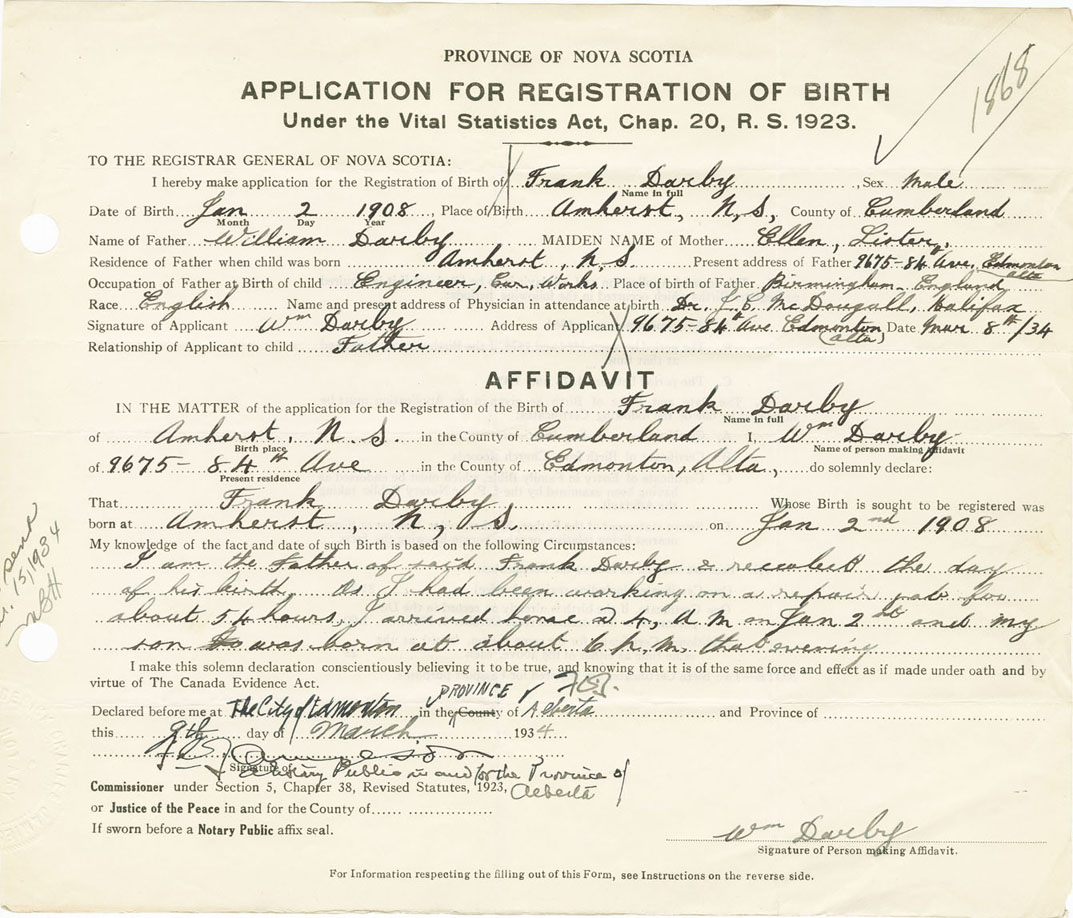 PROVINCE OF NOVA SCOTIA
1868
APPLICATION FOR REGISTRATION OF BIRTH
Under the Vital Statistics Act, Chap. 20, R. S. 1923.
TO THE REGISTRAR GENERAL OF NOVA SCOTIA:
I hereby make application for the Registration of Birth of Frank Darby, Sex Male
Name in full
Date of Birth Jan 2 1908, Place of Birth Amherst, N, S, County of Cumberland
Month Day Year
Name of Father William Darby MAIDEN NAME of Mother Ellen, Lister,
Residence of Father when child was born Amherst, N. S. Present address of Father 9675-84th Ave, Edmonton
Alta
Occupation of Father at Birth of child Engineer, Car, Works. Place of birth of Father Birmingham - England
Race English Name and present address of Physician in attendance at birth Dr. J. E. McDougall, Halifax
Signature of Applicant Wm Darby Address of Applicant 9675-84th Ave. Edmonton Date Mar 8th/34
(Alta)
Relationship of Applicant to child Father
AFFIDAVIT
IN THE MATTER of the application for the Registration of the Birth of Frank Darby
Name in full
of Amherst, N. S. in the County of Cumberland I, Wm Darby
Birth place Name of person making Affidavit
of 9675-84th Ave in the County of Edmonton, Alta, do solemnly declare:
Present residence
That Frank Darby Whose Birth is sought to be registered was
born at Amherst, N, S. on Jan 2nd 1908
My knowledge of the fact and date of such Birth is based on the following Circumstances:
I am the Father of said Frank Darby & recollect the day
of his birth. As I had been working on a repair job for
about 54 hours, I arrived home at 4, A M on Jan 2nd and my
son was born at about 6 P.M. that evening
I make this solemn declaration conscientiously believing it to be true, and knowing that it is of the same force and effect as if made under oath and by
virtue of The Canada Evidence Act.
Declared before me at The City of Edmonton in the County PROVINCE of Alberta and Province of
this 9th day of March 1934
Signature of
Notary Public in and for the Province of
Alberta
Commissioner under Section 5, Chapter 38, Revised Statutes, 1923,
or Justice of the Peace in and for the County of
If sworn before a Notary Public affix seal.
Wm Darby
Signature of Person making Affidavit.
For Information respecting the filling out of this Form, see Instructions on the reverse side.